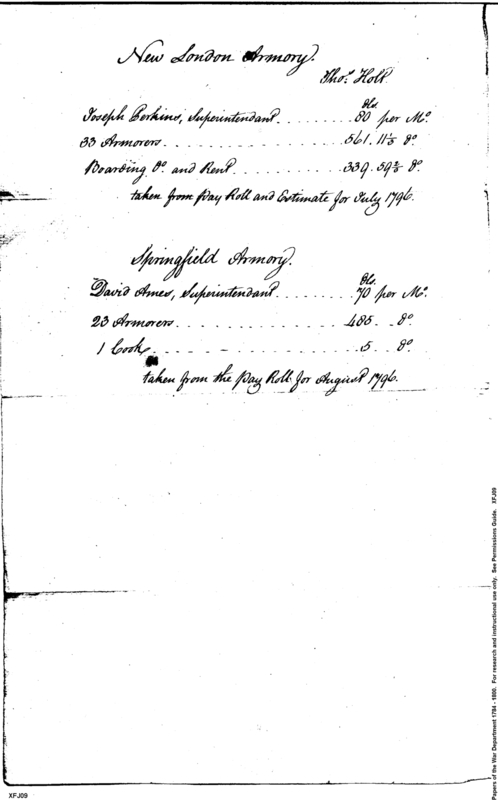 New London Armory.
Thos. Holt
Dls.
Joseph Perkins, Superintendant . . . . . . . . 80 per Mo.
33 Armorers . . . . . . . . . . . . . . . . 561. 11⅓ do.
Boarding Do. and Rent . . . . . . . . . . . 339. 59⅔ do.
taken from Pay Roll and Estimate for July 1796.
Springfield Armory.
Dls.
David Ames, Superintendant . . . . . . . . 70 per Mo.
23 Armorers . . . . . . . . . . . . . . . . 485 . . do.
1 Cook . . . . . . . . . . . . . . . . 5 . . do.
taken from the Pay Roll for August 1796.
Papers of the War Department 1784 - 1800. For research and instructional use only. See Permissions Guide. XFJ09
XFJ09